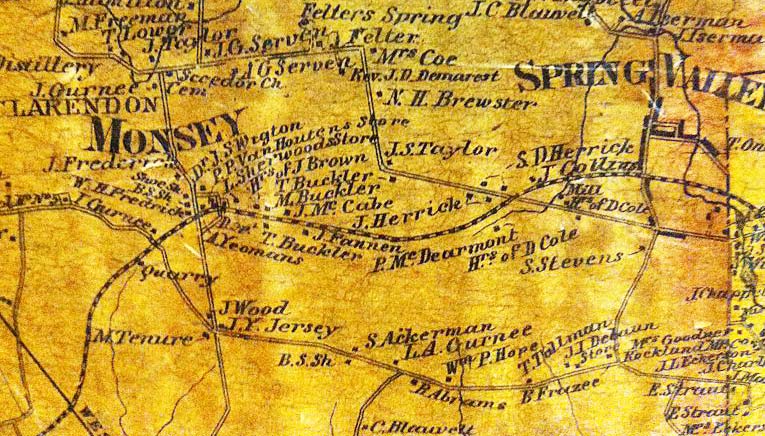 Felters Spring
J. C. Blauvelt
M. Freeman
T. Lower
J. Taylor
J. G. Serven
J. Felter
A. G. Serven
Mrs Coe
Rev. J. D. Demarest
N. H. Brewster
Distillery
J. Gurnee
Secedor Ch
Cem
CLARENDON
SPRING VALLEY
MONSEY
J. Frederick
Dr. J. S. Wigton
P. P. Van Houtens Store
L. Sherwoods Store
Hrs of J Brown
T. Buckler
M. Buckler
J. Mc Cabe
J. Herrick
J. S. Taylor
S. D. Herrick
J. Collins
Mill
Hrs of D Cole
W. H. Fredrick
J. Gurnee
A Yeomans
T. Buckler
J. Fannen
P. Mc Dearmont
Hrs of D Cole
S. Stevens
Quarry
J. Wood
J. Y. Jersey
M. Tenure
B. S. Sh
S. Ackerman
L. A. Gurnee
Wm P. Hope
T. Tallman
J. J. Debaun
Store
Mrs Goodner
Rockland
J. L. Eckerson
B. Abrams
B Frazee
C. Blauvelt
E. Straut
E. Straut